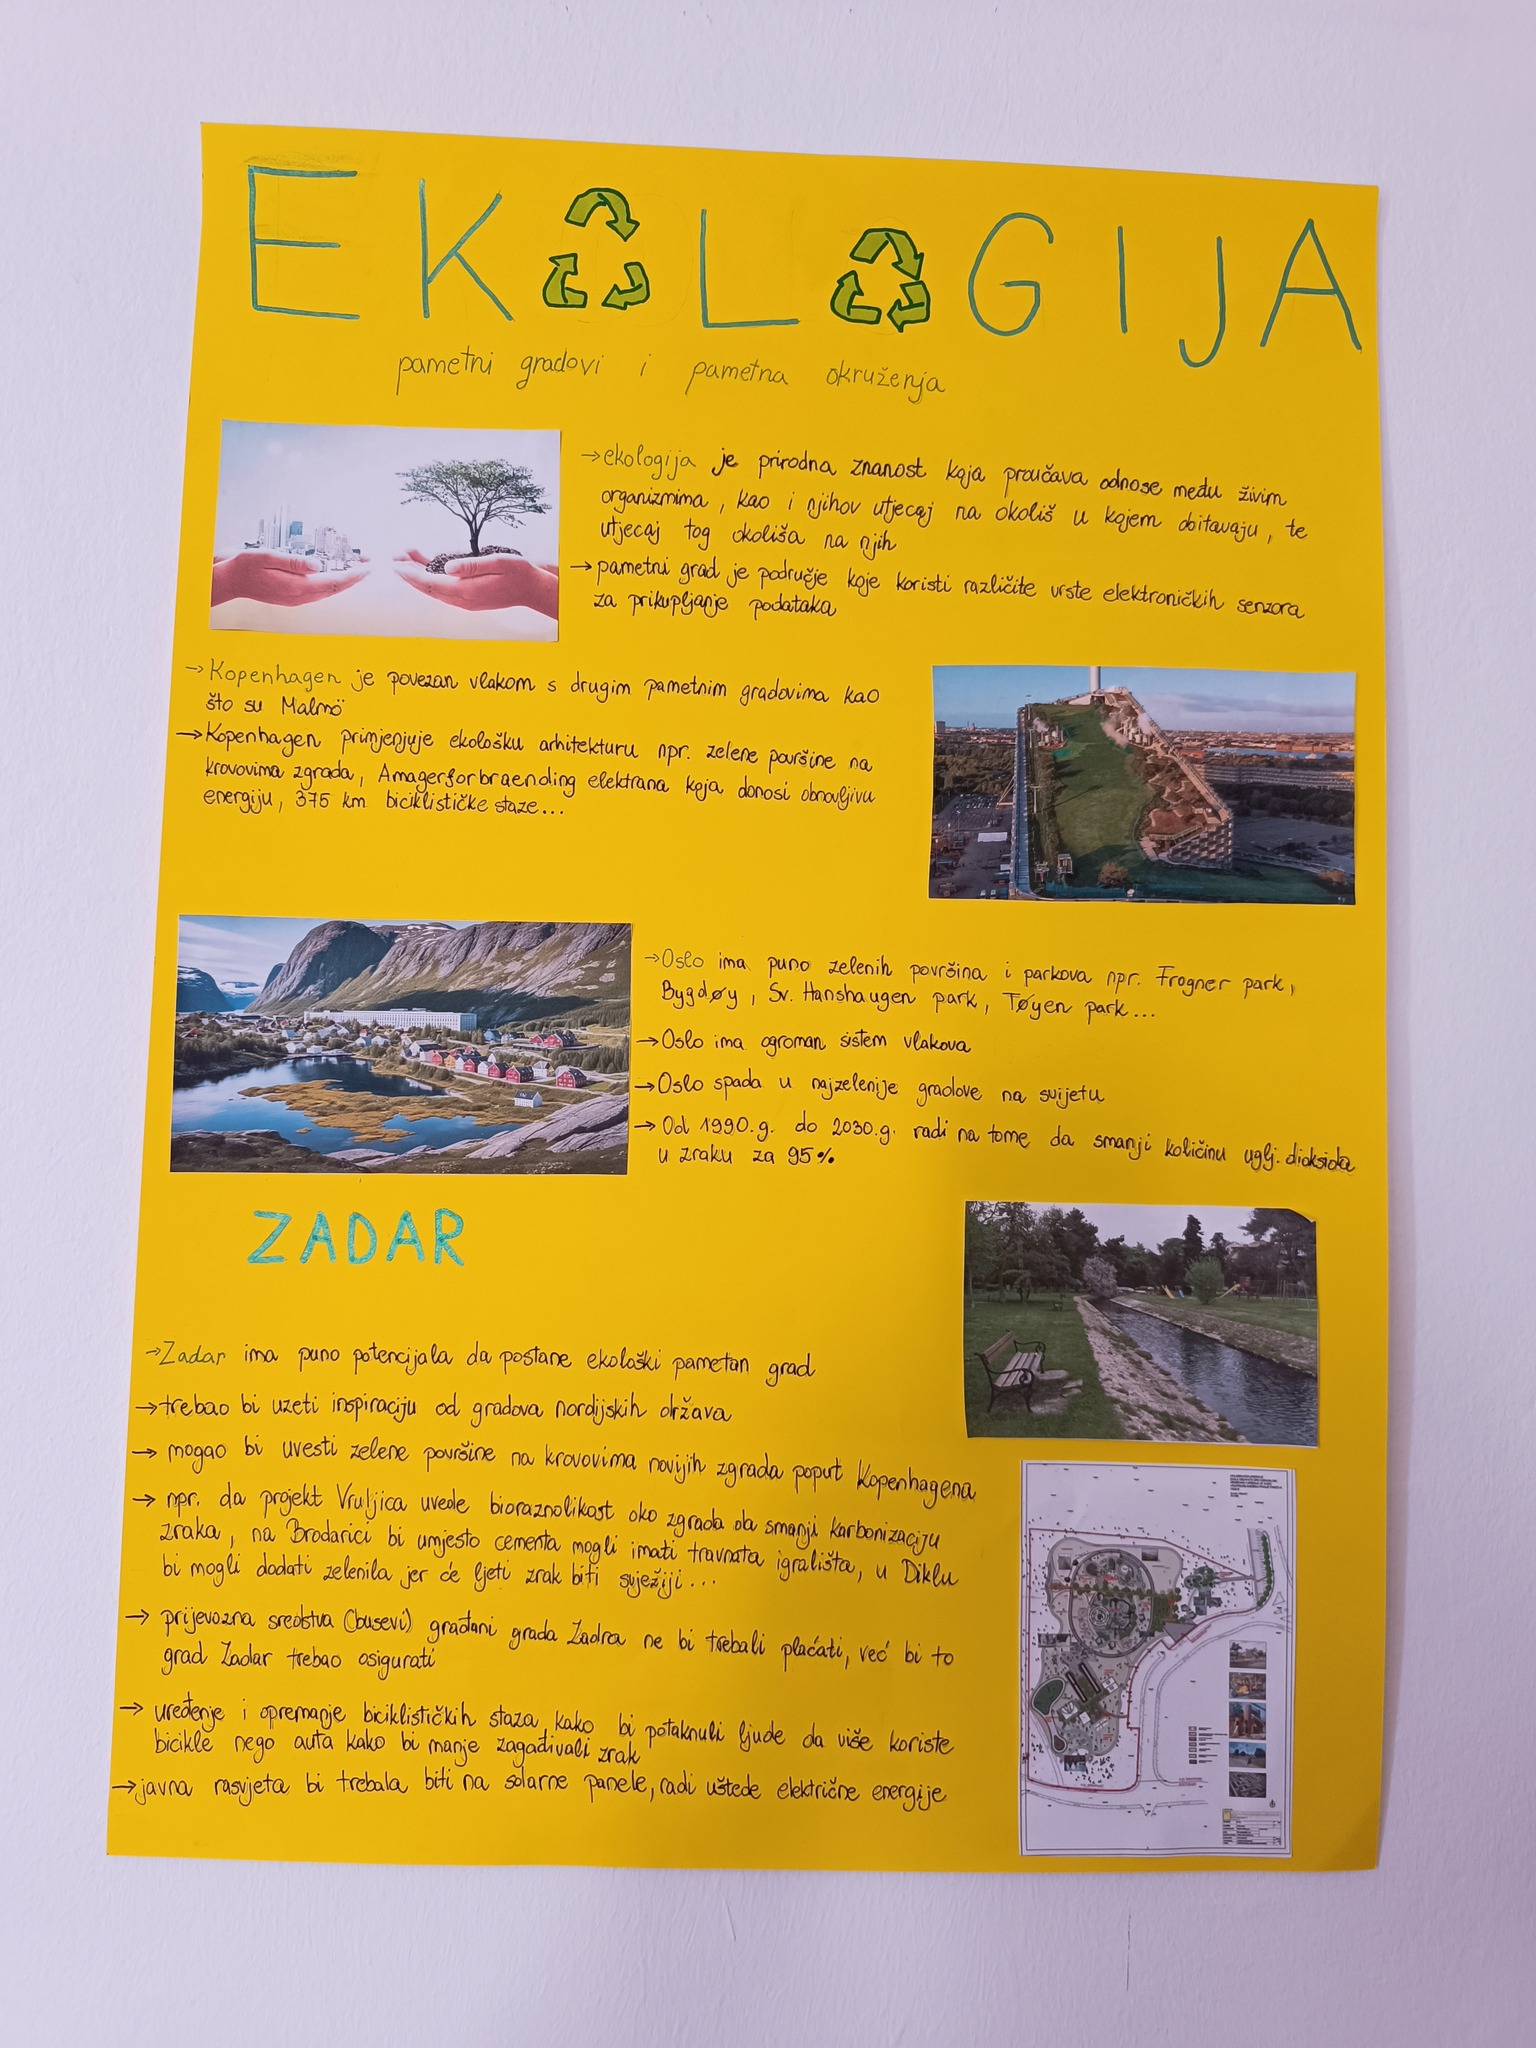 EKOLOGIJA
pametni gradovi i pametna okruženja
→ekologija je prirodna znanost koja proučava odnose među živim
organizmima, kao i njihov utjecaj na okoliš u kojem obitavaju, te
utjecaj tog okoliša na njih
→pametni grad je područje koje koristi različite vrste elektroničkih senzora
za prikupljanje podataka
→Kopenhagen je povezan vlakom s drugim pametnim gradovima kao
što su Malmö
→Kopenhagen primjenjuje ekološku arhitekturu npr. zelene površine na
krovovima zgrada, Amagerforbraending elektrana koja donosi obnovljivu
energiju, 375 km biciklističke staze...
→Oslo ima puno zelenih površina i parkova npr. Frogner park,
Bygdøy, Sv. Hanshaugen park, Tøyen park...
→Oslo ima ogroman sistem vlakova
→Oslo spada u najzelenije gradove na svijetu
→Od 1990.g. do 2030.g. radi na tome da smanji količinu uglj. dioksida
u zraku za 95%
ZADAR
→Zadar ima puno potencijala da postane ekološki pametan grad
→trebao bi uzeti inspiraciju od gradova nordijskih država
→mogao bi uvesti zelene površine na krovovima novijih zgrada poput Kopenhagena
→npr. da projekt Vruljica uvede bioraznolikost oko zgrada da smanji karbonizaciju
zraka, na Brodarici bi umjesto cementa mogli imati travnata igrališta, u Diklu
bi mogli dodati zelenila jer će ljeti zrak biti svježiji...
→prijevozna sredstva (busevi) građani grada Zadra ne bi trebali plaćati, već bi to
grad Zadar trebao osigurati
→uređenje i opremanje biciklističkih staza kako bi potaknuli ljude da više koriste
bicikle nego auta kako bi manje zagađivali zrak
→javna rasvjeta bi trebala biti na solarne panele, radi uštede električne energije